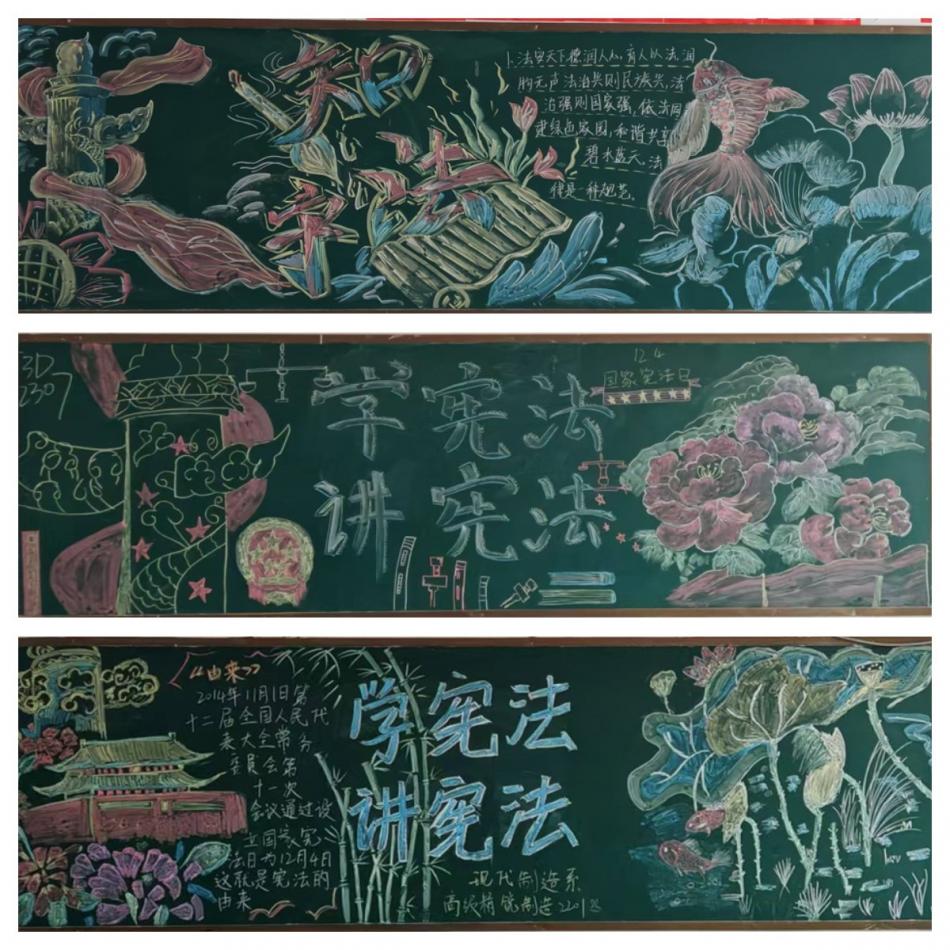 知
守
法
卜.法安天下德润人心,育人以法,润
物无声法治兴则民族兴,法
治强则国家强,依法同
建绿色家园,和谐共
碧水蓝天,法
律是一种规范。
3D
2307
学宪法
讲宪法
12.4
国家宪法日
"由来"
2014年11月1日第
十二届全国人民代
表大会常务
委员会第
十一次
会议通过设
立国家宪
法日为12月4日
这就是宪法的
由来
学宪法
讲宪法
现代制造系
高级精铣制造2201班